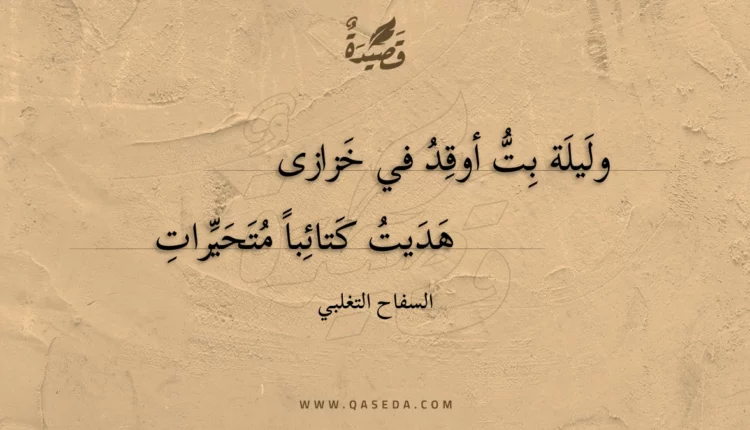 قَصِيْدَةٌ
ولَيلَة بِتُّ أوقِدُ في خَزازى
هَدَيتُ كَتائِباً مُتَحَيِّراتِ
السفاح التغلبي
WWW.QASEDA.COM